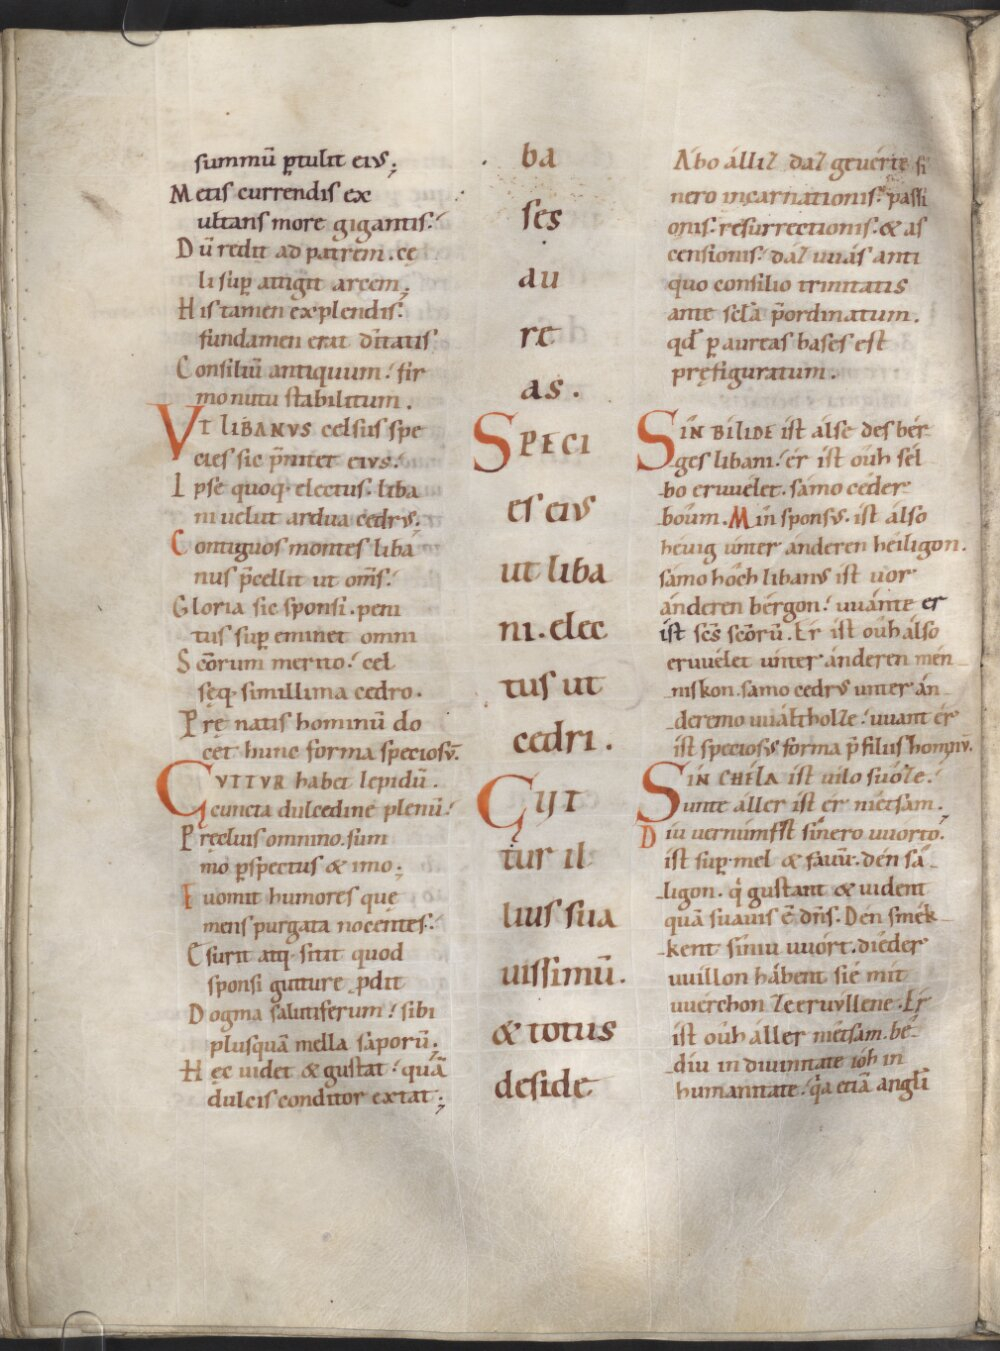 summū ꝑtulit eius;
Metis currendis ex
ultans more gigantis.
Dū redit ad patrem. ce
li suꝑ attigit arcem;
His tamen explendis.
fundamen erat dītatis
Consiliū antiquum. fir
mo nutu stabilitum.
VT LIBANVS celsus spe
cies sic p̄nitet eius.
Ipse quoq; electus. liba
ni uelut ardua cedrus;
Contiguos montes liba
nus p̄cellit ut om̄s.
Gloria sic sponsi. peni
tus suꝑ eminet omni
Scōrum merito. cel
sęq; simillima cedro.
Prę natis hominū do
cet hunc forma speciosū.
GVTTVR habet lepidū.
cuncta dulcedine plenū.
Pręcluis omnino. sum
mo ꝑspectus & imo;
Euomit humores que
mens purgata nocentes.
Esurit atq; sitit quod
sponsi gutture ꝓdit
Dogma salutiferum. sibi
plusquā mella saporū.
Hęc uidet & gustat. quā
dulcis conditor extat;
ba
ses
au
re
as.
SPECI
es eius
ut liba
ni. elec
tus ut
cedri.
Gut
tur il
lius sua
uissimū.
& totus
deside
Ábo állíz daz geuérte sí
nero incarnationis. passi
onis. resurrectionis. & as
censionis. dáz uuás anti
quo consilio trinitatis
ante sc̄la p̄ordinatum.
qd̄ ꝑ aureas bases est
pręfiguratum.
SIN BILIDE ist álse des bér
ges libani. ér ist oûh sél
bo eruuélet. sámo céder
boûm. Mín sponsus. ist álso
héuig únter ánderen heîligon.
sámo hôch libanus ist uor
ánderen bérgon. uuánte er
ist scs̄ scōrū. Ér ist oûh álso
eruuélet únter ánderen mén
niskon. samo cedrus unter án
deremo uuáltholze. uuant ér
ist speciosus forma p̄ filiis hominū.
SIN CHÉLA ist uilo suôze.
unte áller ist ér niétsam.
Diu uernúmfst sínero uuórto.
ist suꝑ mel & fauū. dén sâ
ligon. qͥ gustant & uident
quā suauis ē dn̄s. Dén smék
kent síniu uuórt. diéder
uuillon hábent siê mit
uuérchon ze eruúllene. Ér
ist oûh áller niétsam. bé
diu in diuinitate ióh in
humanitate. qͣa etiā angl̄i